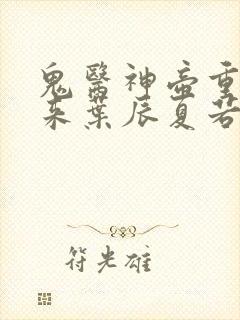 鬼醫神壺重
來葉辰夏若
符光雄